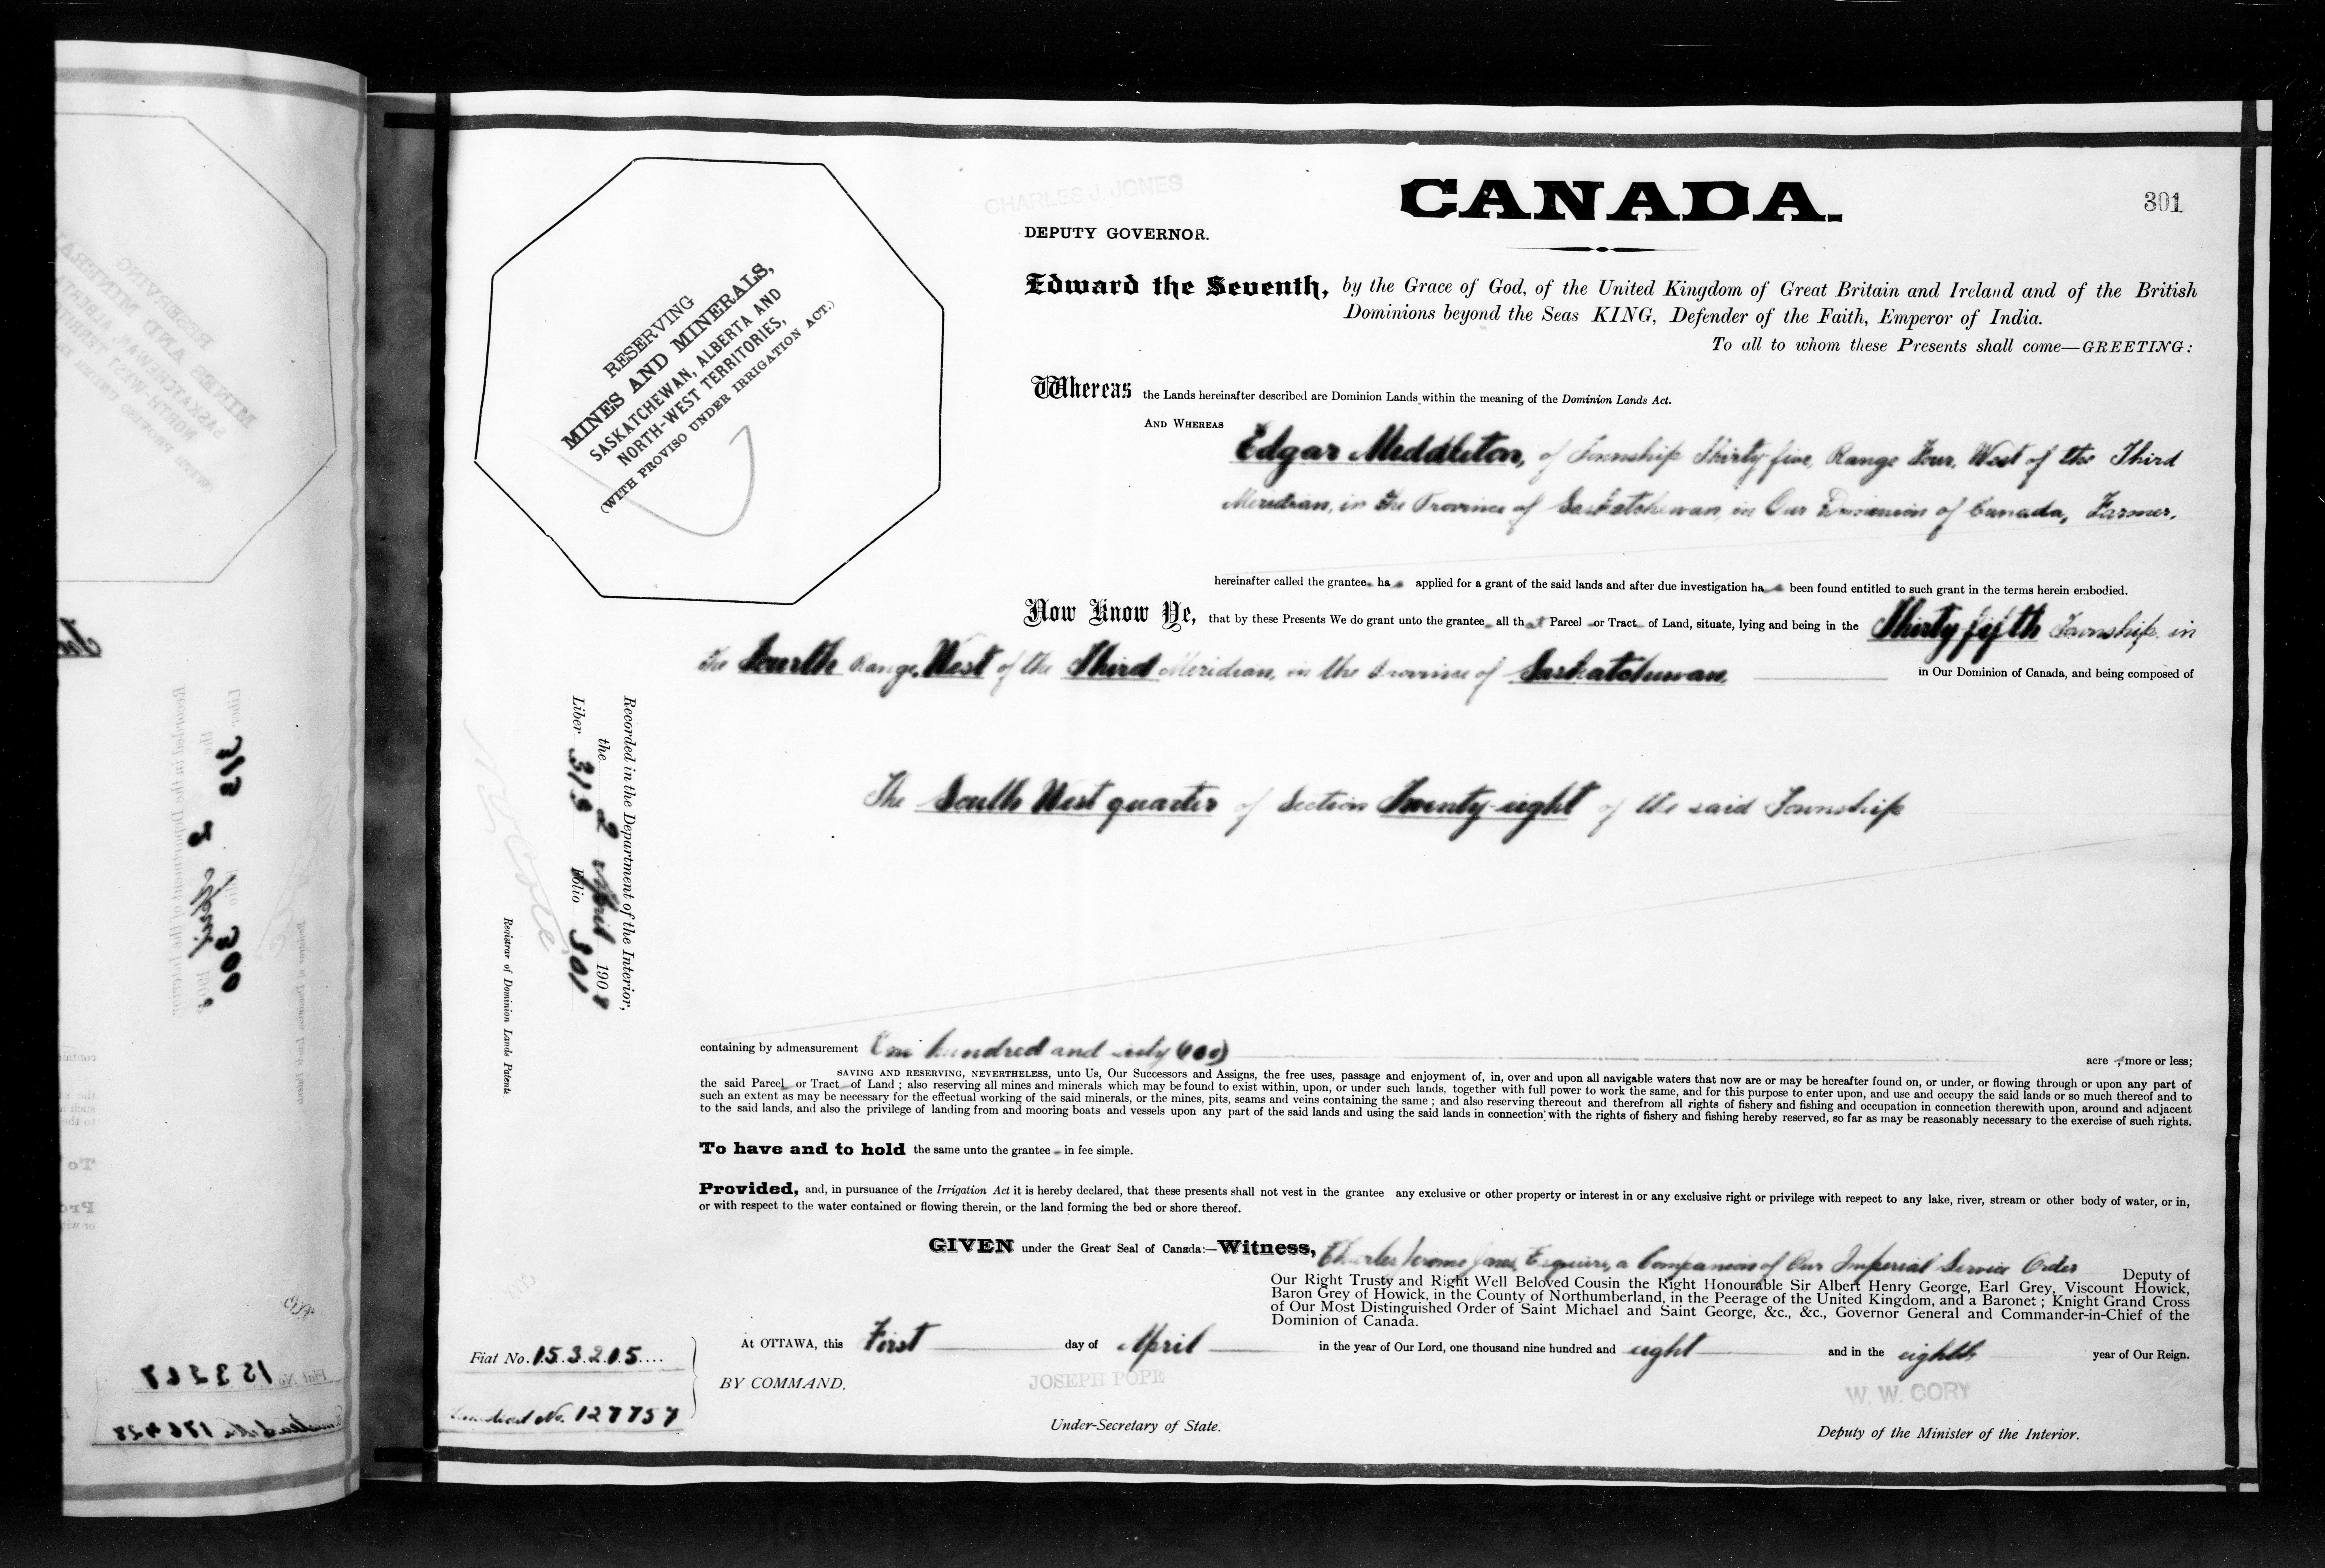 CHARLES J. JONES
DEPUTY GOVERNOR.
CANADA.
301
RESERVING
MINES AND MINERALS,
SASKATCHEWAN, ALBERTA AND
NORTH-WEST TERRITORIES,
(WITH PROVISO UNDER IRRIGATION ACT.)
Edward the Seventh, by the Grace of God, of the United Kingdom of Great Britain and Ireland and of the British
Dominions beyond the Seas KING, Defender of the Faith, Emperor of India.
To all to whom these Presents shall come—GREETING:
Whereas the Lands hereinafter described are Dominion Lands within the meaning of the Dominion Lands Act.
AND WHEREAS
Edgar Meddleton, of Township Thirty five, Range Four, West of the Third
Meridian, in the Province of Saskatchewan, in Our Dominion of Canada, Farmer.
hereinafter called the grantee ha s applied for a grant of the said lands and after due investigation ha s been found entitled to such grant in the terms herein embodied.
Now Know Ye, that by these Presents We do grant unto the grantee all that Parcel or Tract of Land, situate, lying and being in the Thirty-fifth Township, in
the Fourth Range, West of the Third Meridian, in the Province of Saskatchewan, in Our Dominion of Canada, and being composed of
The South West quarter of Section Twenty-eight of the said Township
Recorded in the Department of the Interior,
the 2 April 1908
Liber 313 Folio 301
Registrar of Dominion Lands Patents
containing by admeasurement One hundred and sixty (160) acre s more or less;
SAVING AND RESERVING, NEVERTHELESS, unto Us, Our Successors and Assigns, the free uses, passage and enjoyment of, in, over and upon all navigable waters that now are or may be hereafter found on, or under, or flowing through or upon any part of
the said Parcel or Tract of Land ; also reserving all mines and minerals which may be found to exist within, upon, or under such lands, together with full power to work the same, and for this purpose to enter upon, and use and occupy the said lands or so much thereof and to
such an extent as may be necessary for the effectual working of the said minerals, or the mines, pits, seams and veins containing the same ; and also reserving thereout and therefrom all rights of fishery and fishing and occupation in connection therewith upon, around and adjacent
to the said lands, and also the privilege of landing from and mooring boats and vessels upon any part of the said lands and using the said lands in connection with the rights of fishery and fishing hereby reserved, so far as may be reasonably necessary to the exercise of such rights.
To have and to hold the same unto the grantee in fee simple.
Provided, and, in pursuance of the Irrigation Act it is hereby declared, that these presents shall not vest in the grantee any exclusive or other property or interest in or any exclusive right or privilege with respect to any lake, river, stream or other body of water, or in,
or with respect to the water contained or flowing therein, or the land forming the bed or shore thereof.
GIVEN under the Great Seal of Canada:—Witness, Charles Jerome Jones, Esquire, a Companion of Our Imperial Service Order Deputy of
Our Right Trusty and Right Well Beloved Cousin the Right Honourable Sir Albert Henry George, Earl Grey, Viscount Howick,
Baron Grey of Howick, in the County of Northumberland, in the Peerage of the United Kingdom, and a Baronet ; Knight Grand Cross
of Our Most Distinguished Order of Saint Michael and Saint George, &c., &c., Governor General and Commander-in-Chief of the
Dominion of Canada.
At OTTAWA, this First day of April in the year of Our Lord, one thousand nine hundred and eight and in the eighth year of Our Reign.
Fiat No. 153205
BY COMMAND,
JOSEPH POPE
W. W. CORY
Homestead No. 127757
Under-Secretary of State.
Deputy of the Minister of the Interior.